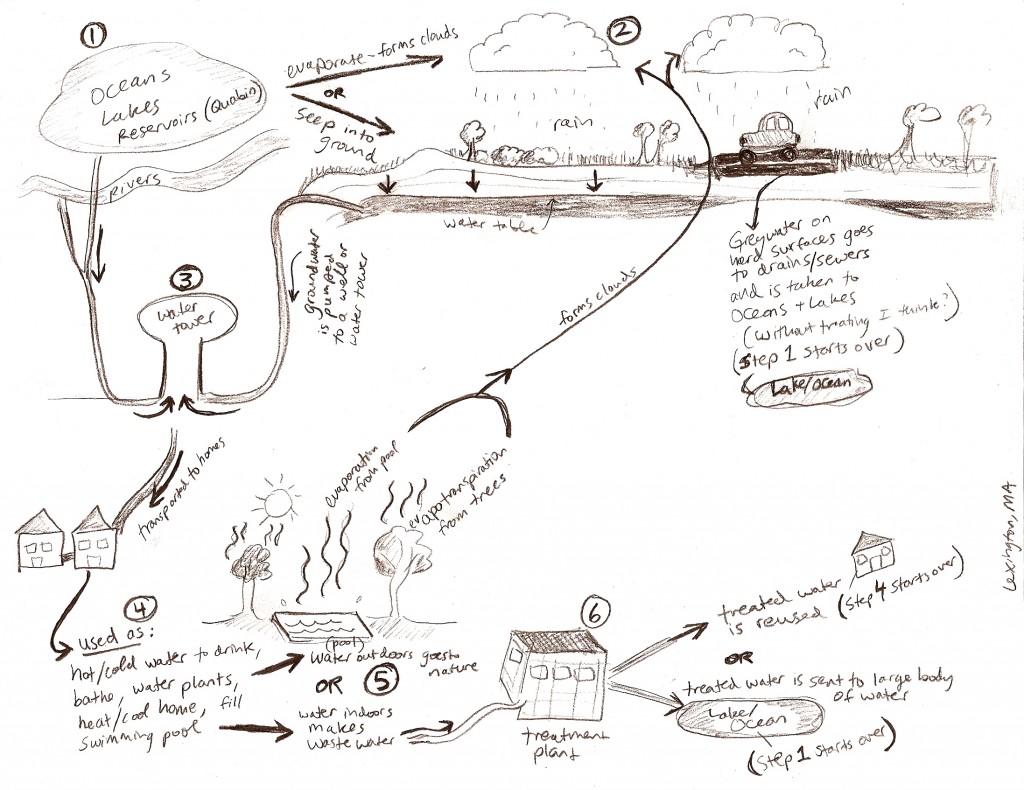 1
Oceans
Lakes
Reservoirs (Quabin)
Rivers
evaporate - forms clouds
OR
Seep into
ground
2
rain
rain
water table
groundwater
is pumped
to a well or
water tower
3
water
tower
Greywater on
hard surfaces goes
to drains/sewers
and is taken to
Oceans + Lakes
(without treating I think?)
(Step 1 starts over)
Lake/Ocean
forms clouds
transported to homes
evaporation
from pool
evapotranspiration
from trees
4
used as:
hot/cold water to drink,
bathe, water plants,
heat/cool home, fill
swimming pool
(pool)
water outdoors goes to
nature
OR 5
water indoors
makes
waste water
6
treatment
plant
treated water
is reused (Step 4 starts over)
OR
treated water is sent to large body
of water
Lake/
Ocean
(Step 1 starts over)
Lexington, MA